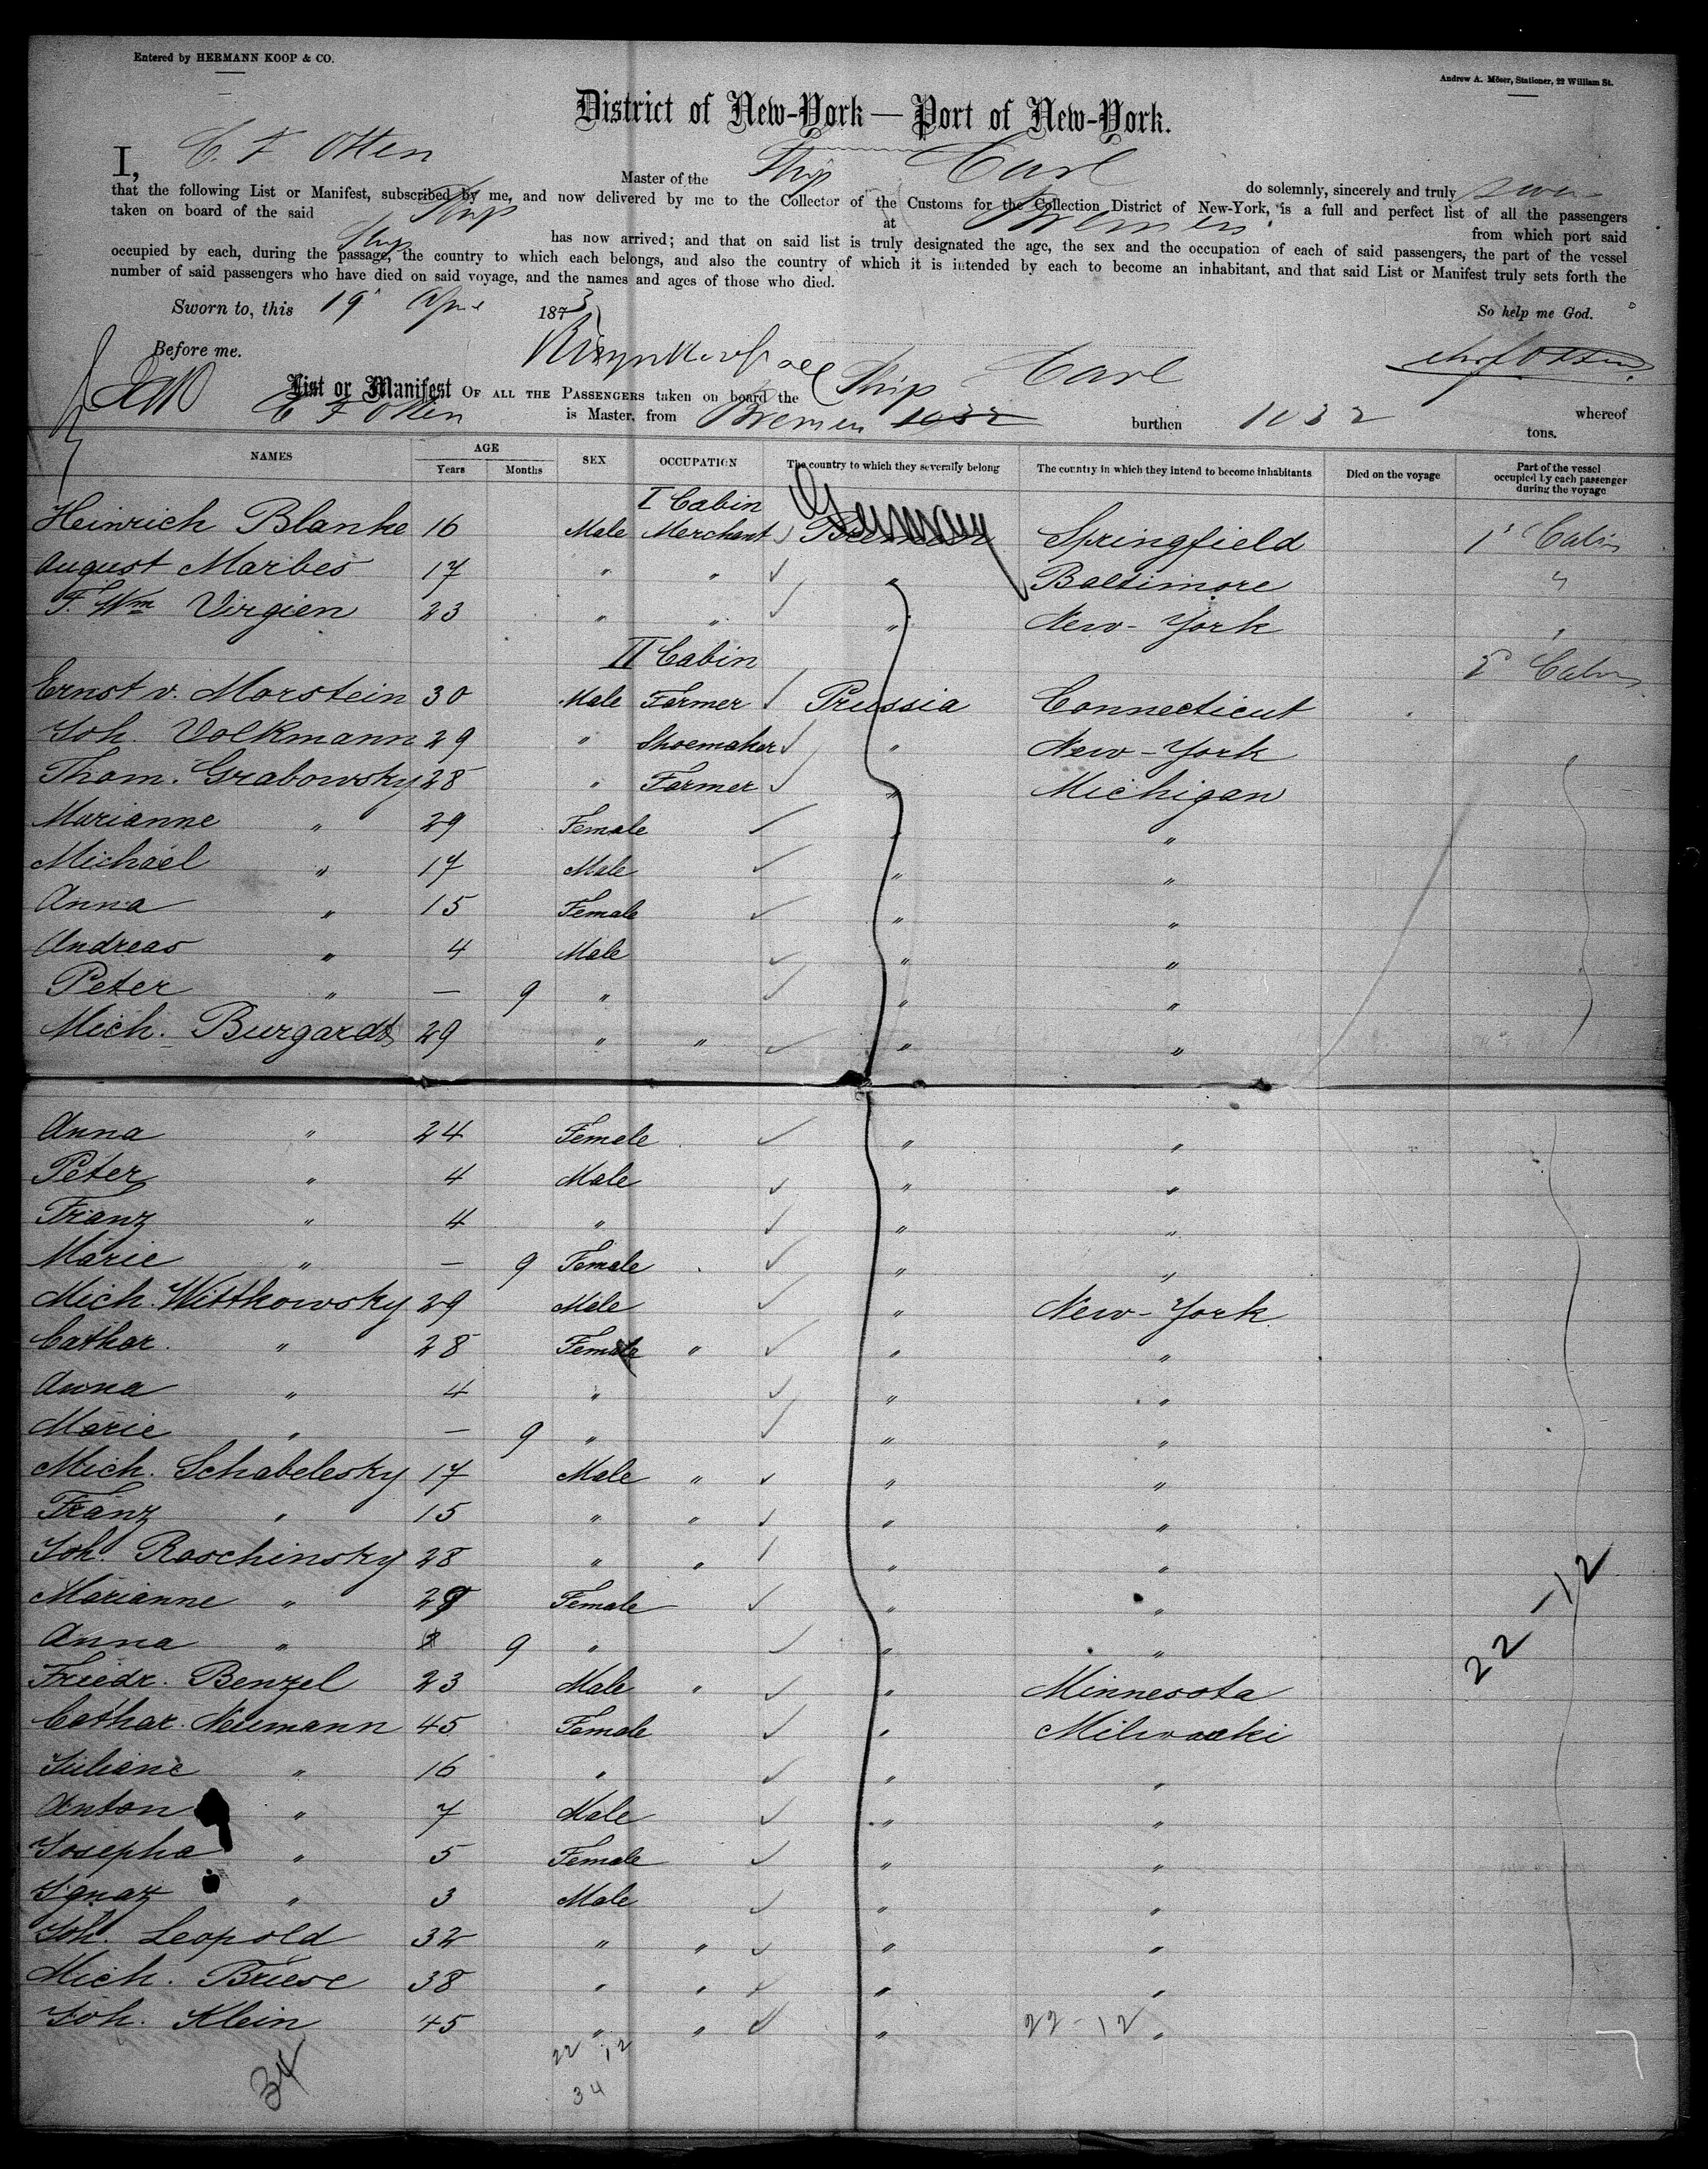 Entered by HERMANN KOOP & CO.
Andrew A. Möser, Stationer, 22 William St.
District of New-York — Port of New-York.
I, C. F Otten Master of the Ship Carl do solemnly, sincerely and truly swear
that the following List or Manifest, subscribed by me, and now delivered by me to the Collector of the Customs for the Collection District of New-York, is a full and perfect list of all the passengers
taken on board of the said Ship at Bremen from which port said
Ship has now arrived; and that on said list is truly designated the age, the sex and the occupation of each of said passengers, the part of the vessel
occupied by each, during the passage, the country to which each belongs, and also the country of which it is intended by each to become an inhabitant, and that said List or Manifest truly sets forth the
number of said passengers who have died on said voyage, and the names and ages of those who died.
Sworn to, this 19 April 1873 So help me God.
Before me.
List or Manifest OF ALL THE PASSENGERS taken on board the Ship Carl whereof
C F Otten is Master, from Bremen 1032 burthen 1032 tons.
NAMES AGE Years Months SEX OCCUPATION The country to which they severally belong The country in which they intend to become inhabitants Died on the voyage Part of the vessel occupied by each passenger during the voyage
I Cabin Germany
Heinrich Blanke 16 Male Merchant Bremen Springfield 1st Cabin
August Marbes 17 " " " Baltimore "
F. Wm Virgien 23 " " " New-York "
II Cabin 2d Cabin
Ernst v. Morstein 30 Male Farmer Prussia Connecticut
Joh. Volkmann 29 " Shoemaker " New-York
Thom. Grabowsky 28 " Farmer " Michigan
Marianne " 29 Female " "
Michael " 17 Male " "
Anna " 15 Female " "
Andreas " 4 Male " "
Peter " — 9 " " "
Mich. Burgardt 29 " " " "
Anna " 24 Female " "
Peter " 4 Male " "
Franz " 4 " " "
Marie " — 9 Female " "
Mich. Wittkowsky 29 Male " New-York
Cathar. " 28 Female " " "
Anna " 4 " " "
Marie " — 9 " " "
Mich. Schabelesky 17 Male " " "
Franz " 15 " " " "
Joh. Raschinsky 28 " " " "
Marianne " 29 Female " "
Anna " 9 " " "
Friedr. Benzel 23 Male " " Minnesota
Cathar. Neumann 45 Female " Milwauki
Juliane " 16 " " "
Anton " 7 Male " "
Josepha " 5 Female " "
Ignaz " 3 Male " "
Joh. Leopold 32 " " " "
Mich. Briese 38 " " " "
Joh. Klein 45 " " " 22-12 "
22-12
22 12
34
34